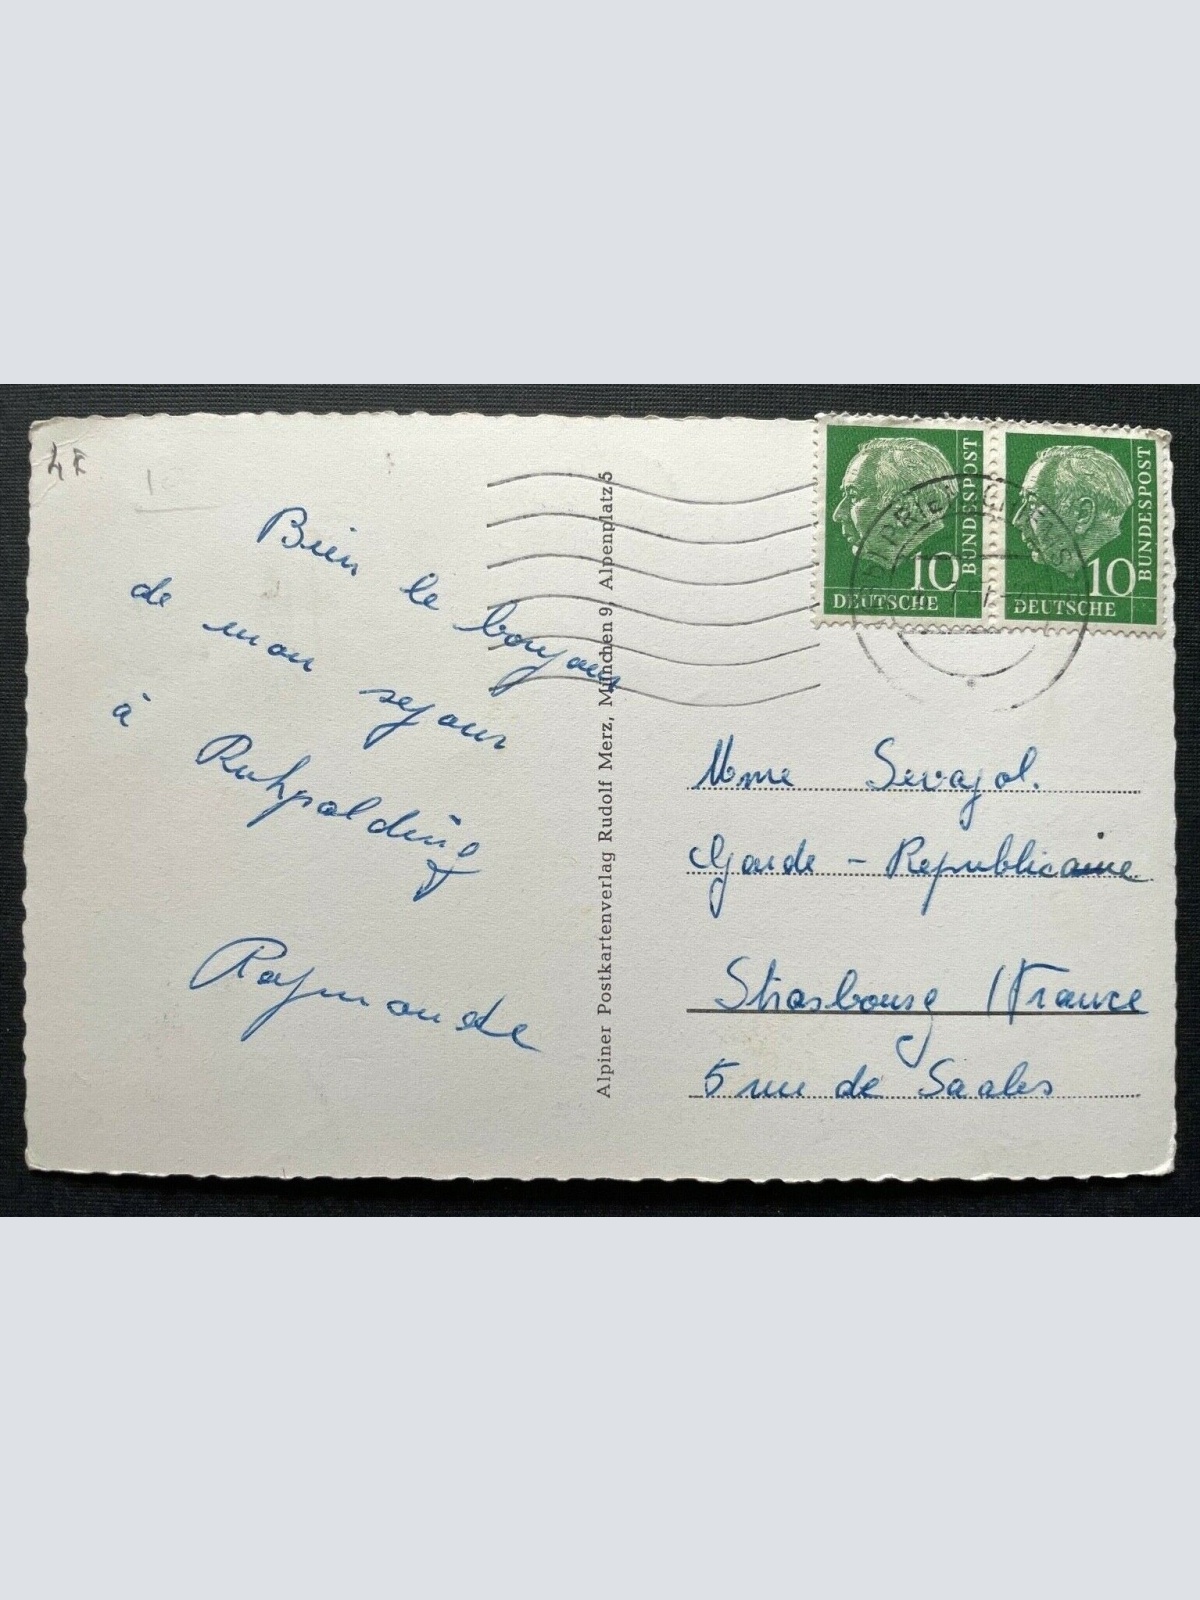 Bien le bonjour
de mon sejour
à Ruhpolding
Raymonde
Alpiner Postkartenverlag Rudolf Merz, München 9, Alpenplatz 5
10
DEUTSCHE
BUNDESPOST
10
DEUTSCHE
BUNDESPOST
Mme Sevajol.
Garde - Republicaine
Strasbourg (France
5 rue de Saales